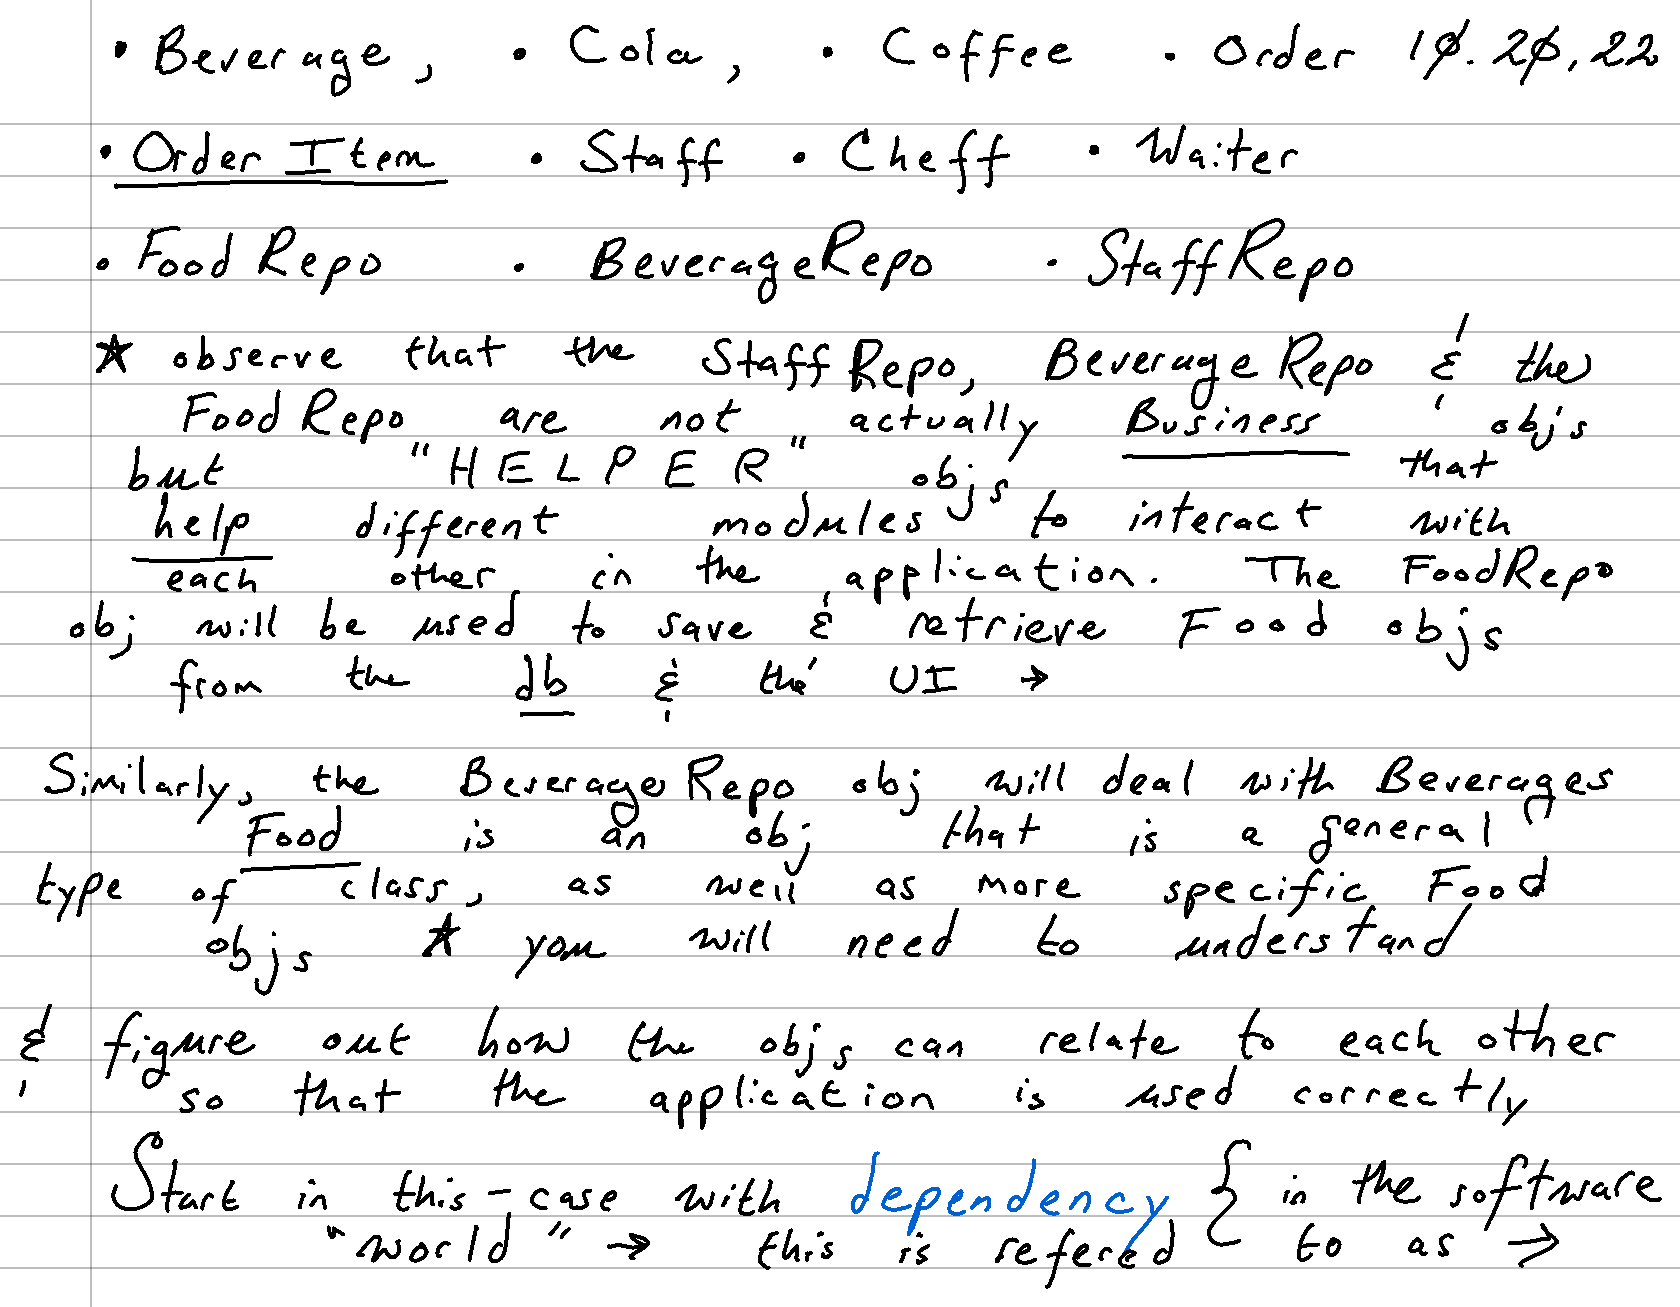 • Beverage, • Cola, • Coffee • Order 10.20.22
• Order Item • Staff • Cheff • Waiter
• Food Repo • BeverageRepo • StaffRepo
★ observe that the StaffRepo, BeverageRepo & the
FoodRepo are not actually Business objs
but "HELPER" objs that
help different modules to interact with
each other in the application. The FoodRepo
obj will be used to save & retrieve Food objs
from the db & the UI →
Similarly, the BeverageRepo obj will deal with Beverages
Food is an obj that is a general
type of class, as well as more specific Food
objs ★ you will need to understand
& figure out how the objs can relate to each other
so that the application is used correctly
Start in this-case with dependency { in the software
"world" → this is refered to as →